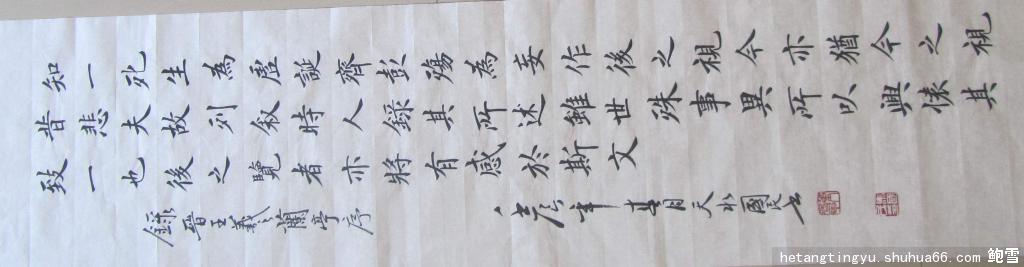 知一死生為虛誕齊彭殤為妄作後之視今亦猶今之視
昔悲夫故列叙時人錄其所述雖世殊事異所以興懷其
致一也後之覽者亦將有感於斯文
錄晉王羲蘭亭序
年 月 天水國 書
hetangtingyu.shuhua66.com 鲍雪